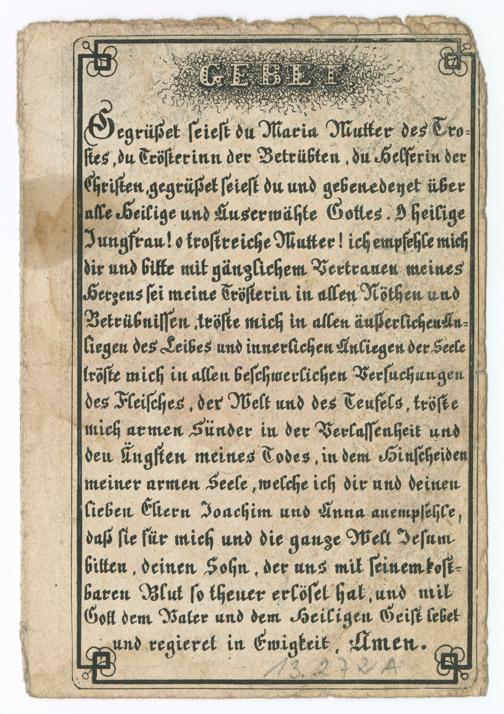 GEBET
Gegrüßet seiest du Maria Mutter des Tro-
stes, du Trösterinn der Betrübten, du Helferin der
Christen, gegrüßet seiest du und gebenedeyet über
alle Heilige und Auserwählte Gottes. O heilige
Jungfrau! o trostreiche Mutter! ich empfehle mich
dir und bitte mit gänzlichem Vertrauen meines
Herzens sei meine Trösterin in allen Nöthen und
Betrübnissen, tröste mich in allen äußerlichen An-
liegen des Leibes und innerlichen Anliegen der Seele
tröste mich in allen beschwerlichen Versuchungen
des Fleisches, der Welt und des Teufels, tröste
mich armen Sünder in der Verlassenheit und
den Ängsten meines Todes, in dem Hinscheiden
meiner armen Seele, welche ich dir und deinen
lieben Eltern Joachim und Anna anempfehle,
daß sie für mich und die ganze Welt Jesum
bitten, deinen Sohn, der uns mit seinem kost-
baren Blut so theuer erlöset hat, und mit
Gott dem Vater und dem Heiligen Geist lebet
und regieret in Ewigkeit, Amen.
13.272 A